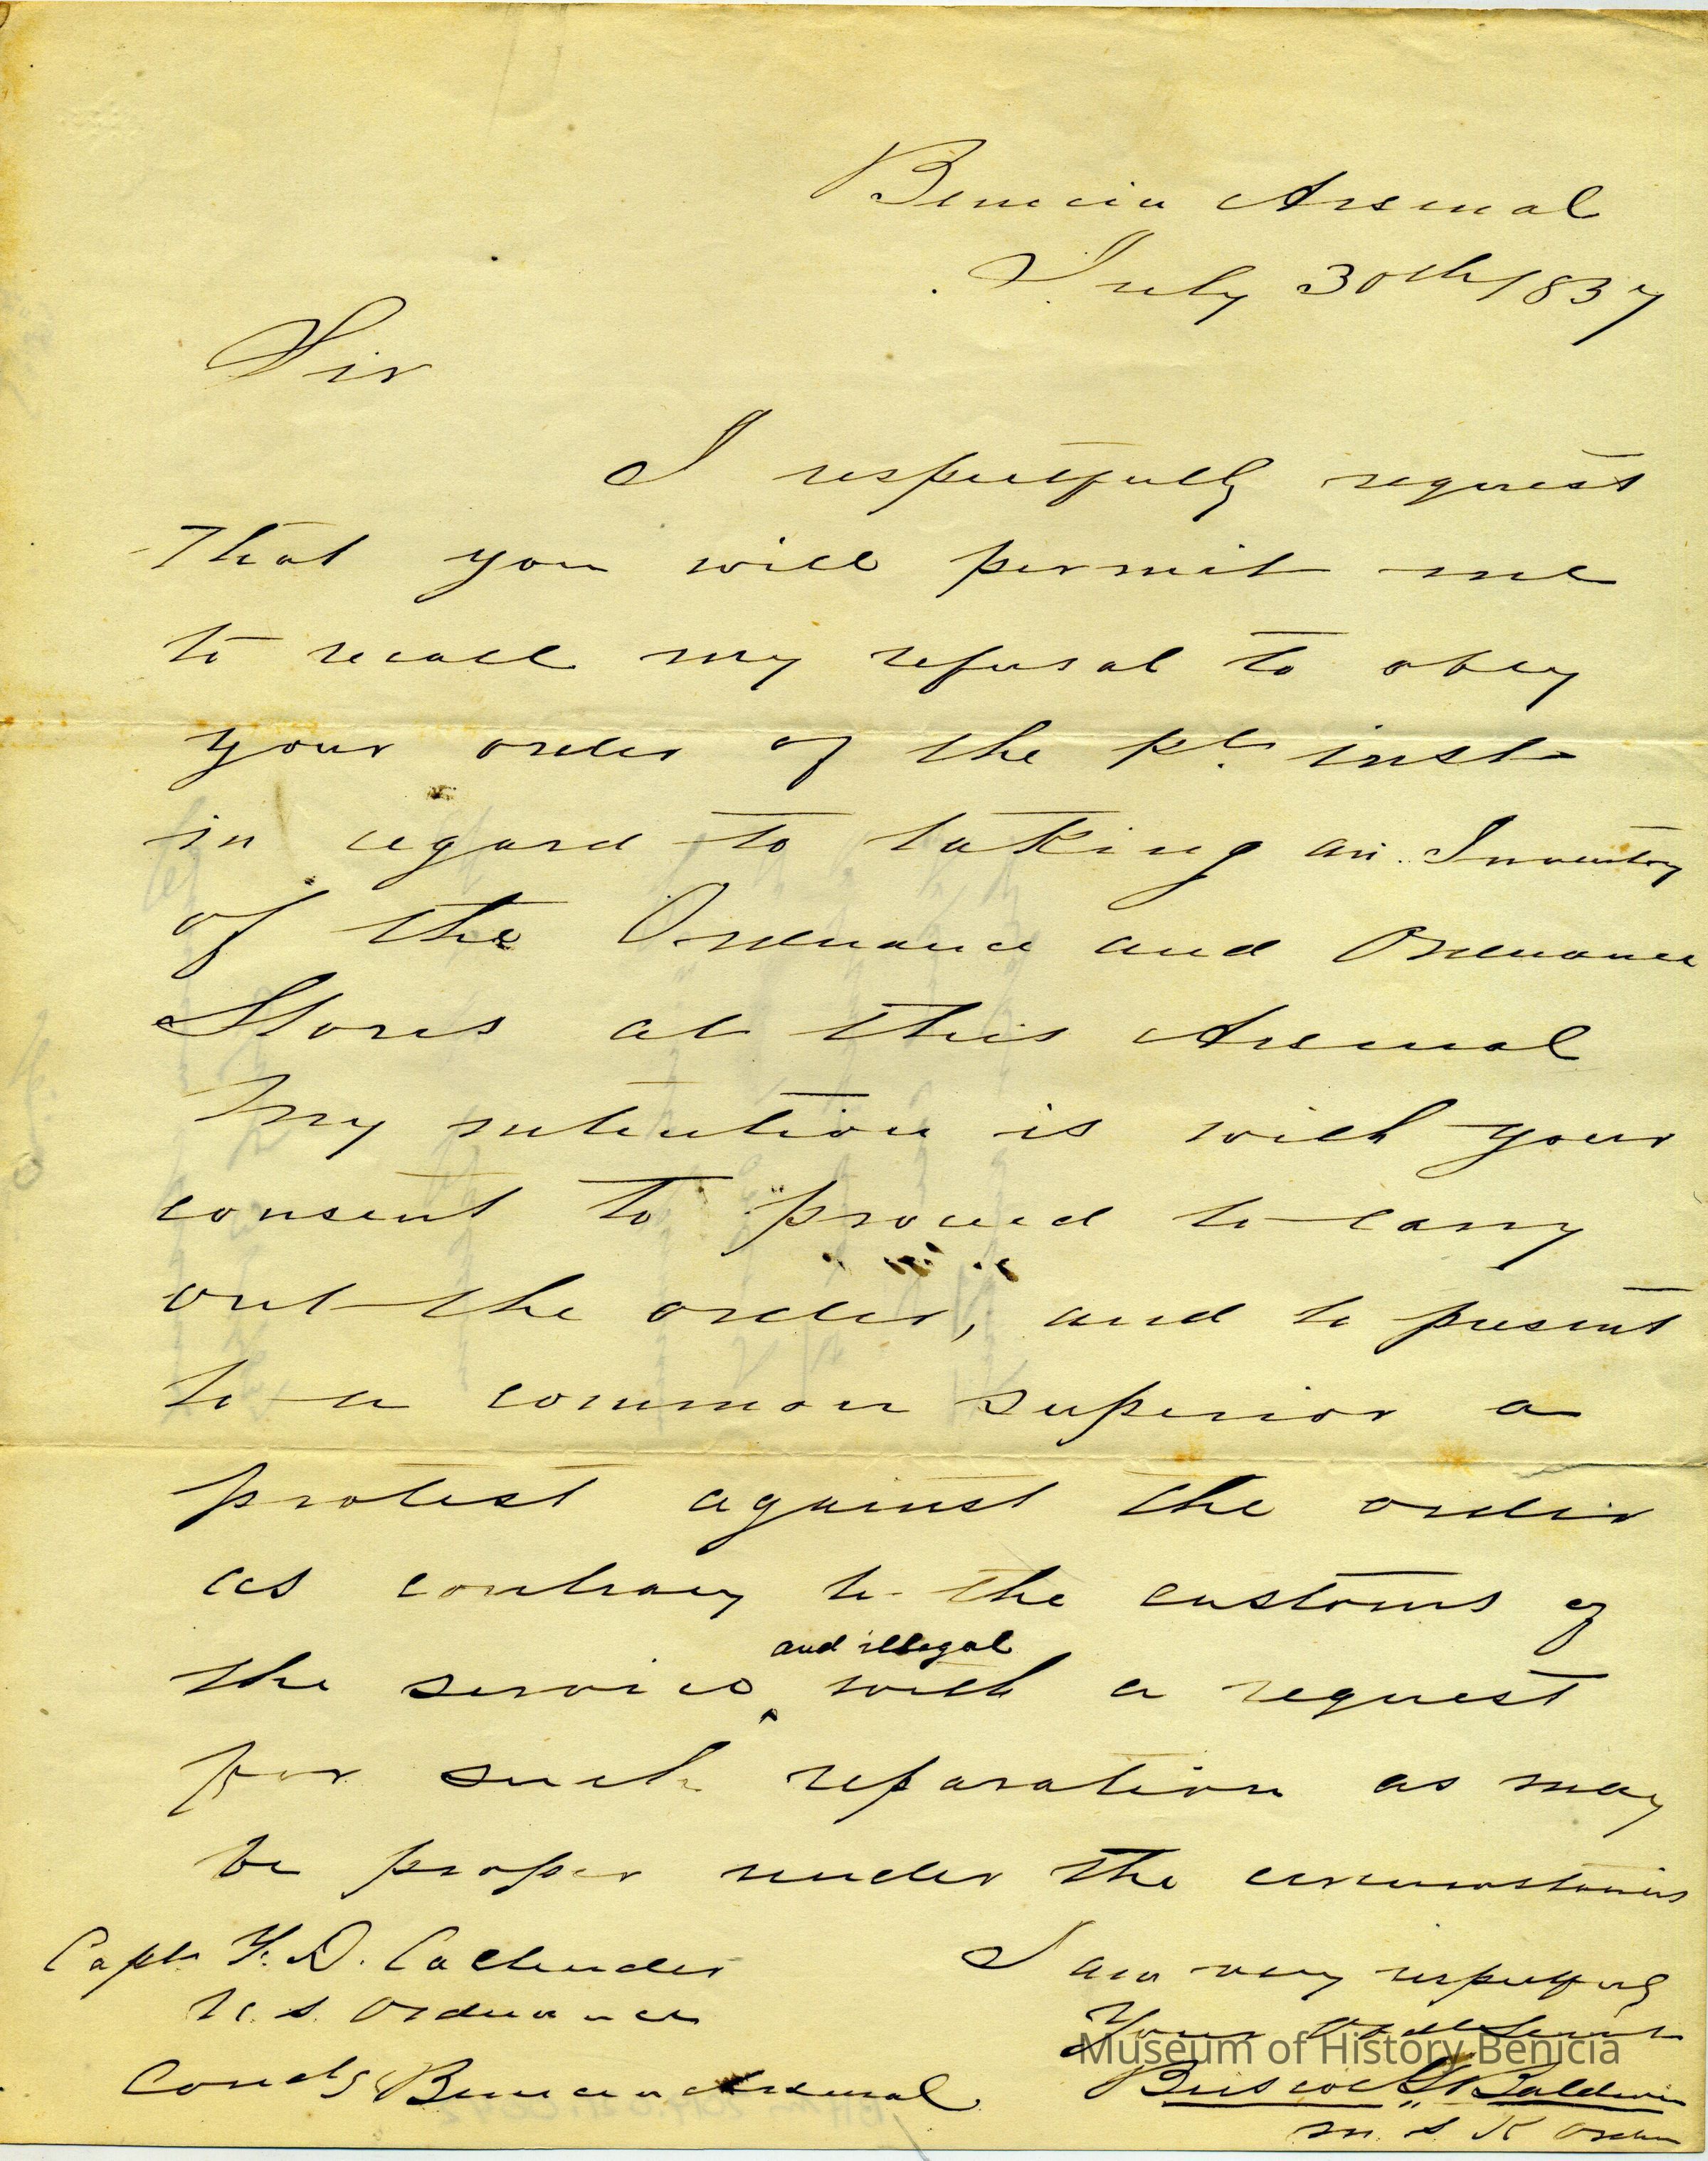 Benicia Arsenal
July 30th 1857
Sir
I respectfully request
that you will permit me
to recall my refusal to obey
your order of the inst
in regard to taking an Inventory
of the Ordnance and Ordnance
Stores at this Arsenal
My intention is with your
consent to proceed to carry
out the order, and to present
to a common superior a
protest against the order
as contrary to the customs of
and illegal
the service ‸ with a request
for such reparation as may
be proper under the circumstances
Capt. F. D. Callender
U. S. Ordnance
Comdg Benicia Arsenal
I am very respectfully
Your Obdt Servt
Museum of History Benicia
Briscoe G. Baldwin
M. S. K Ordn